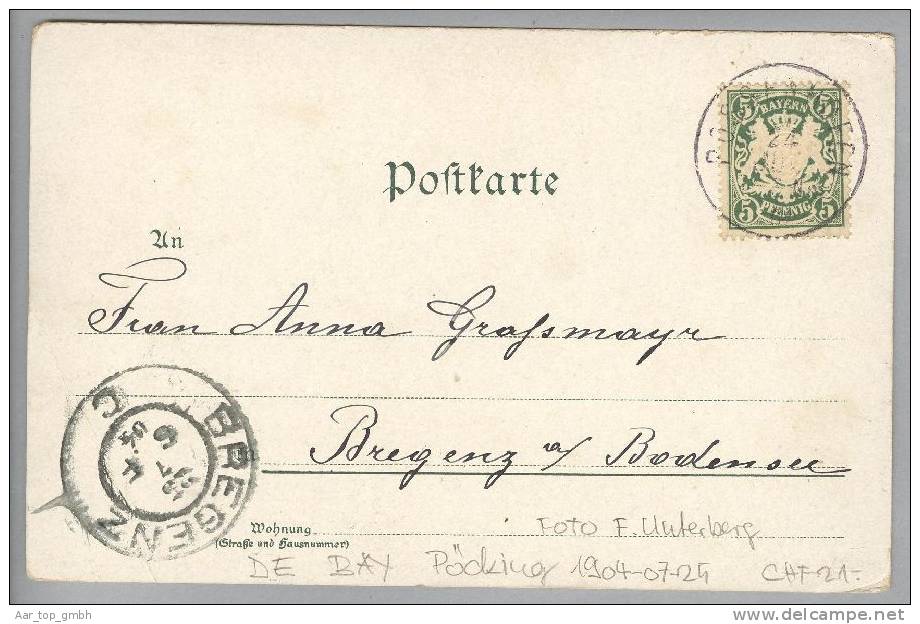 BAYERN
5 5
24
5 PFENNIG 5
Postkarte
An
Frau Anna Graßmayr
Bregenz a/ Bodensee
BREGENZ
Wohnung
(Straße und Hausnummer)
Foto F. Unterberg
DE BAY Pöcking 1904-07-25 CHF 21.-
Aar_top_gmbh
www.delcampe.net